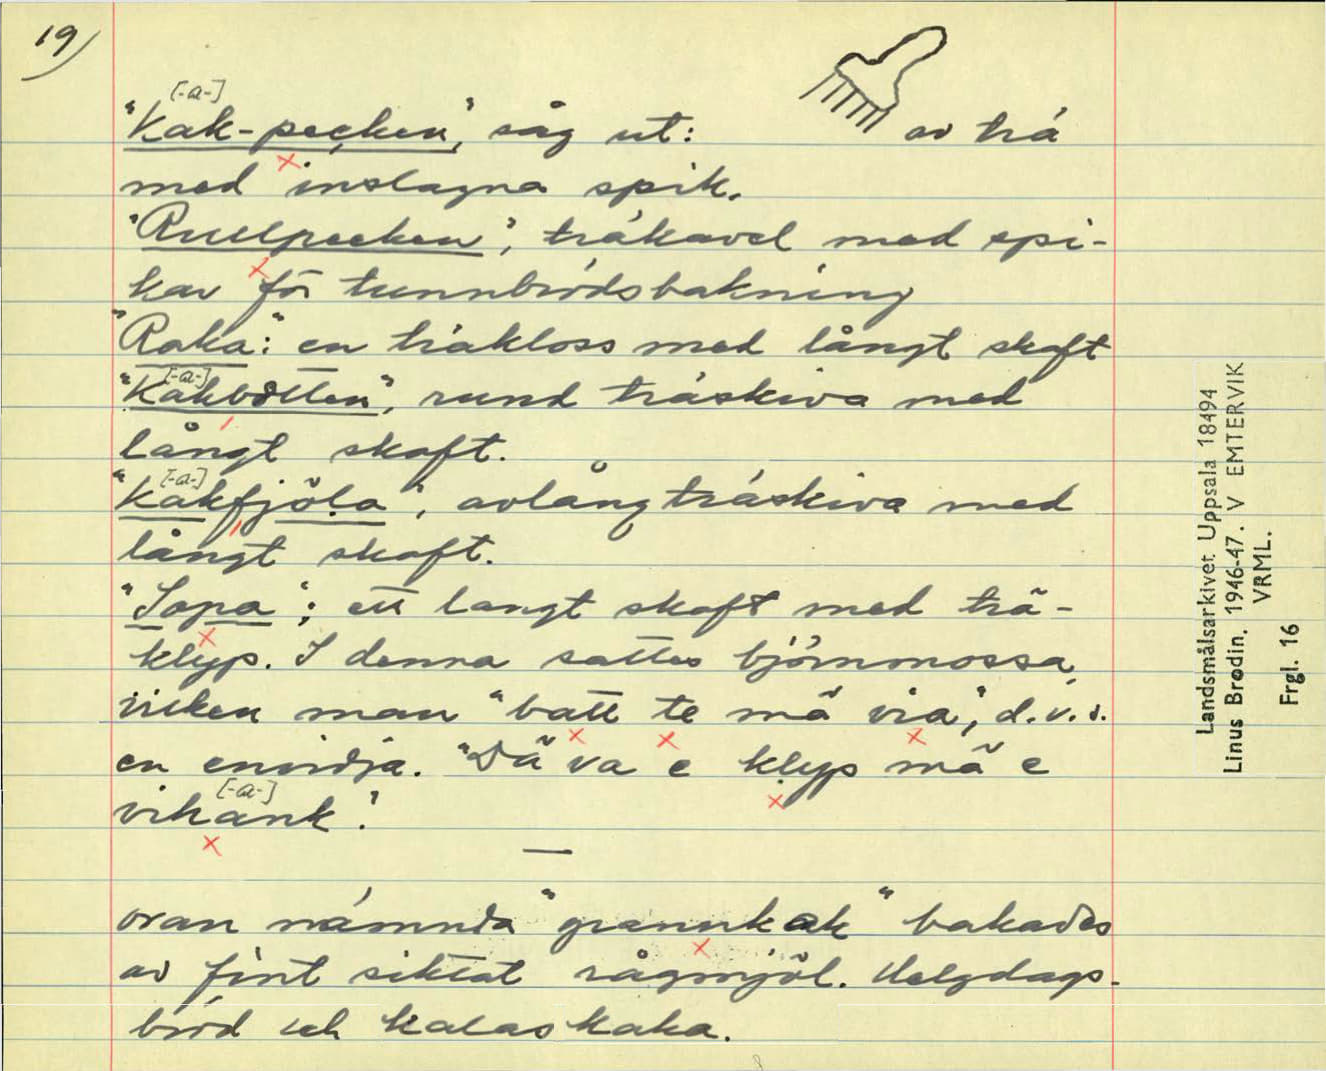 19)
[-a-]
"Kak-pecken", såg ut: av trä
med inslagna spik.
"Rullpecken", träkavel med spi-
kar för tunnbrödsbakning
"Raka": en träkloss med långt skaft
[-a-]
"Kakbotten", rund träskiva med
långt skaft.
[-a-]
"Kakfjöla", avlång träskiva med
långt skaft.
"Sopa"; ett langt skaft med trä-
klyp. I denna sattes björnmossa,
vicken man "batt te mä via", d.v.s.
en envidja. "Dä va e klyp mä e
[-a-]
vihank".
—
ovan nämnda "grannkak" bakades
av fint siktat rågmjöl. Helgdags-
bröd och kalaskaka.
Landsmålsarkivet Uppsala 18494
Linus Brodin. 1946-47. V EMTERVIK
VRML.
Frgl. 16